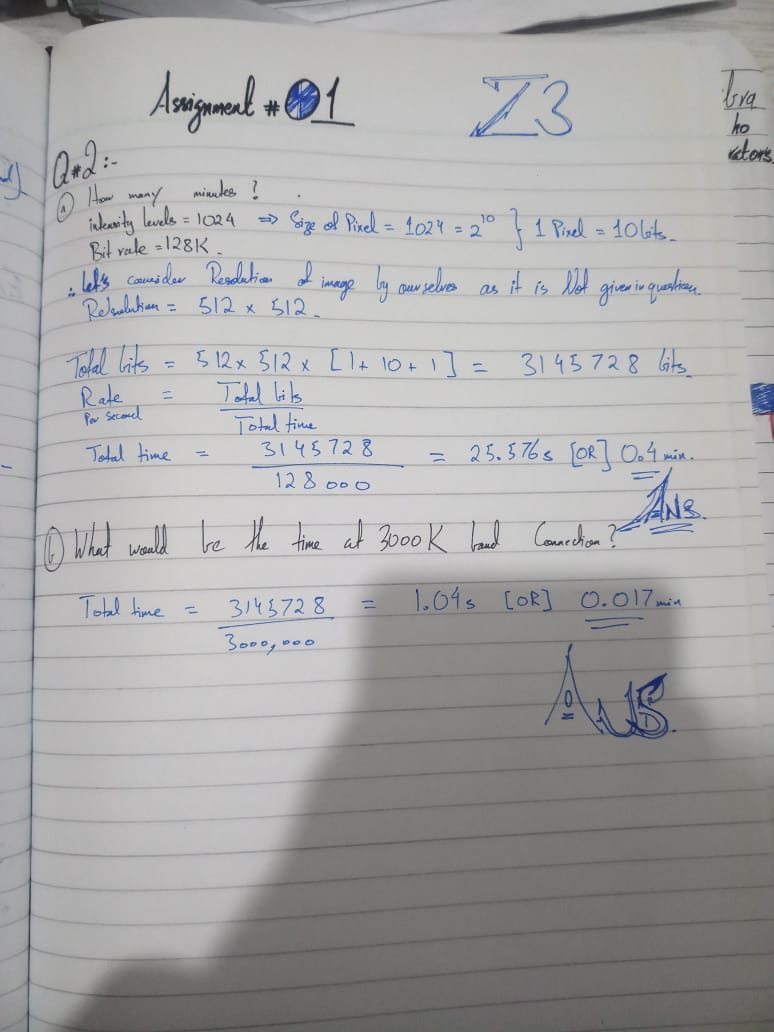 Assignment # 01
Z3
Q#2:-
a) How many minutes?
intensity levels = 1024 ⇒ Size of Pixel = 1024 = 2^10 } 1 Pixel = 10bits.
Bit rate = 128K.
∴ Let's consider Resolution of image by ourselves as it is Not given in question.
Resolution = 512 × 512.
Total bits = 512 × 512 × [1 + 10 + 1] = 3145728 bits.
Rate Per second = Total bits / Total time
Total time = 3145728 / 128000 = 25.576s [OR] 0.4 min.
ANS.
b) What would be the time at 3000K baud Connection?
Total time = 3145728 / 3000,000 = 1.04s [OR] 0.017 min
ANS.